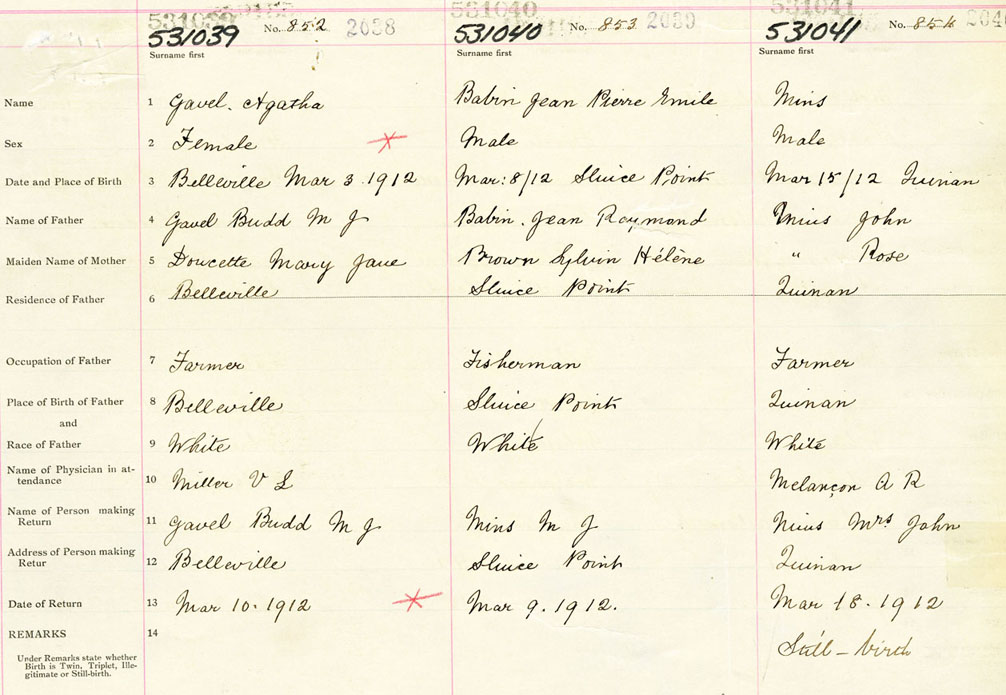 531039 No. 852 2038 531040 No. 853 2039 531041 No. 854
Surname first Surname first Surname first
Name 1 Gavel. Agatha Babin Jean Pierre Emile Mius
Sex 2 Female Male Male
Date and Place of Birth 3 Belleville Mar 3. 1912 Mar: 8/12 Sluice Point Mar 15/12 Quinan
Name of Father 4 Gavel Budd M J Babin. Jean Raymond Mius John
Maiden Name of Mother 5 Doucette Mary Jane Brown Sylvin Hélène " Rose
Residence of Father 6 Belleville Sluice Point Quinan
Occupation of Father 7 Farmer Fisherman Farmer
Place of Birth of Father 8 Belleville Sluice Point Quinan
and
Race of Father 9 White White White
Name of Physician in at-
tendance 10 Miller V L Melançon A R
Name of Person making
Return 11 Gavel Budd M J Mius M J Mius Mrs John
Address of Person making
Retur 12 Belleville Sluice Point Quinan
Date of Return 13 Mar 10. 1912 Mar 9. 1912. Mar 18. 1912
REMARKS 14 Still-birth
Under Remarks state whether
Birth is Twin, Triplet, Ille-
gitimate or Still-birth.